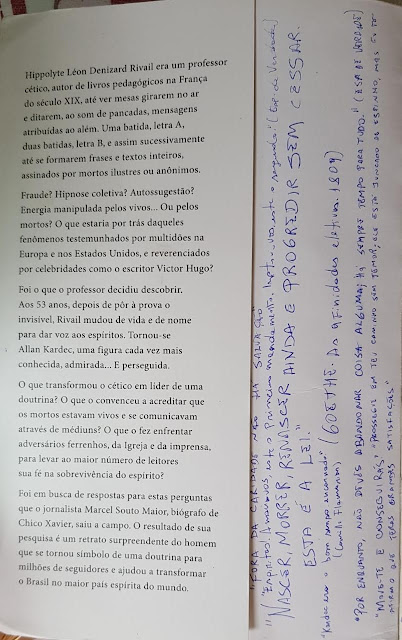 Hippolyte Léon Denizard Rivail era um professor
cético, autor de livros pedagógicos na França
do século XIX, até ver mesas girarem no ar
e ditarem, ao som de pancadas, mensagens
atribuídas ao além. Uma batida, letra A,
duas batidas, letra B, e assim sucessivamente
até se formarem frases e textos inteiros,
assinados por mortos ilustres ou anônimos.
Fraude? Hipnose coletiva? Autossugestão?
Energia manipulada pelos vivos... Ou pelos
mortos? O que estaria por trás daqueles
fenômenos testemunhados por multidões na
Europa e nos Estados Unidos, e reverenciados
por celebridades como o escritor Victor Hugo?
Foi o que o professor decidiu descobrir.
Aos 53 anos, depois de pôr à prova o
invisível, Rivail mudou de vida e de nome
para dar voz aos espíritos. Tornou-se
Allan Kardec, uma figura cada vez mais
conhecida, admirada... E perseguida.
O que transformou o cético em líder de uma
doutrina? O que o convenceu a acreditar que
os mortos estavam vivos e se comunicavam
através de médiuns? O que o fez enfrentar
adversários ferrenhos, da Igreja e da imprensa,
para levar ao maior número de leitores
sua fé na sobrevivência do espírito?
Foi em busca de respostas para estas perguntas
que o jornalista Marcel Souto Maior, biógrafo de
Chico Xavier, saiu a campo. O resultado de sua
pesquisa é um retrato surpreendente do homem
que se tornou símbolo de uma doutrina para
milhões de seguidores e ajudou a transformar
o Brasil no maior país espírita do mundo.
"FORA DA CARIDADE NÃO HÁ SALVAÇÃO
"Espíritas! Amai-vos, este o primeiro mandamento. Instruí-vos, este o segundo." (Esp. de Verdade)
"NASCER, MORRER, RENASCER AINDA E PROGREDIR SEM CESSAR.
ESTA É A LEI."
"Kardec era o bom senso encarnado" (GOETHE. As afinidades eletivas. 1809)
(Camille Flammarion)
"POR ENQUANTO, NÃO DEVES ABANDONAR COISA ALGUMA; HÁ SEMPRE TEMPO PARA TUDO." (ESP. DE VERDADE)
"MOVE-TE E CONSEGUIRÁS", "PROSSEGUE EM TEU CAMINHO SEM TEMOR; ELE ESTÁ JUNCADO DE ESPINHO, MAS EU TE
AFIRMO QUE TERÁS GRANDES SATISFAÇÕES"